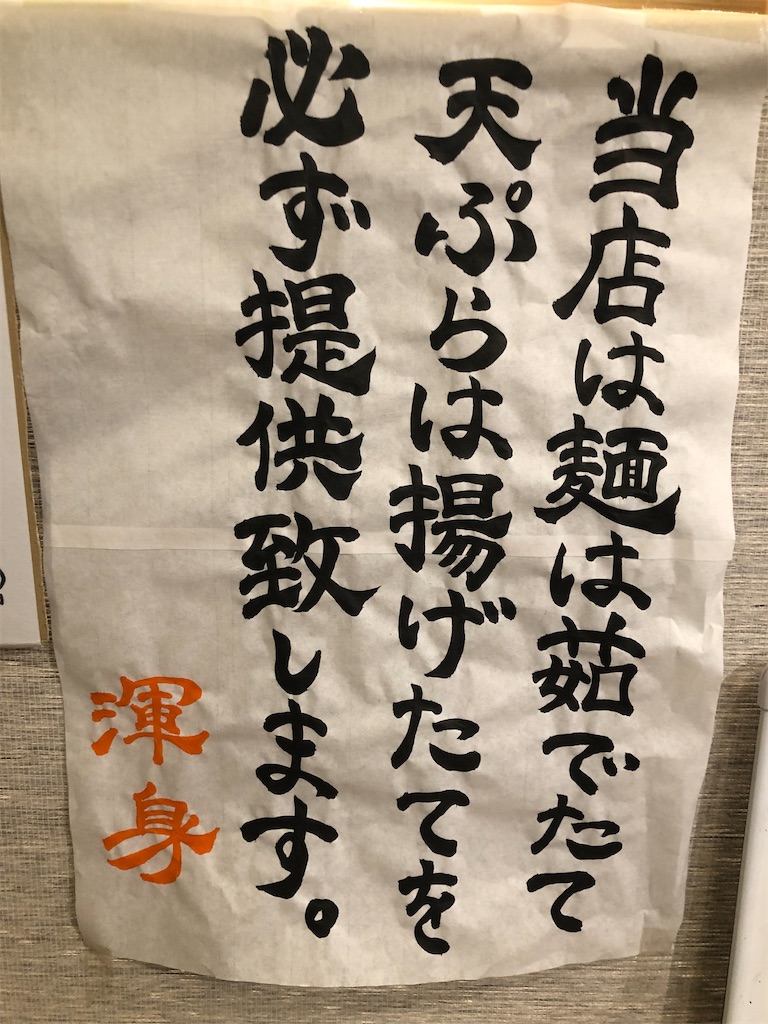 当店は麺は茹でたて
天ぷらは揚げたてを
必ず提供致します。
渾身